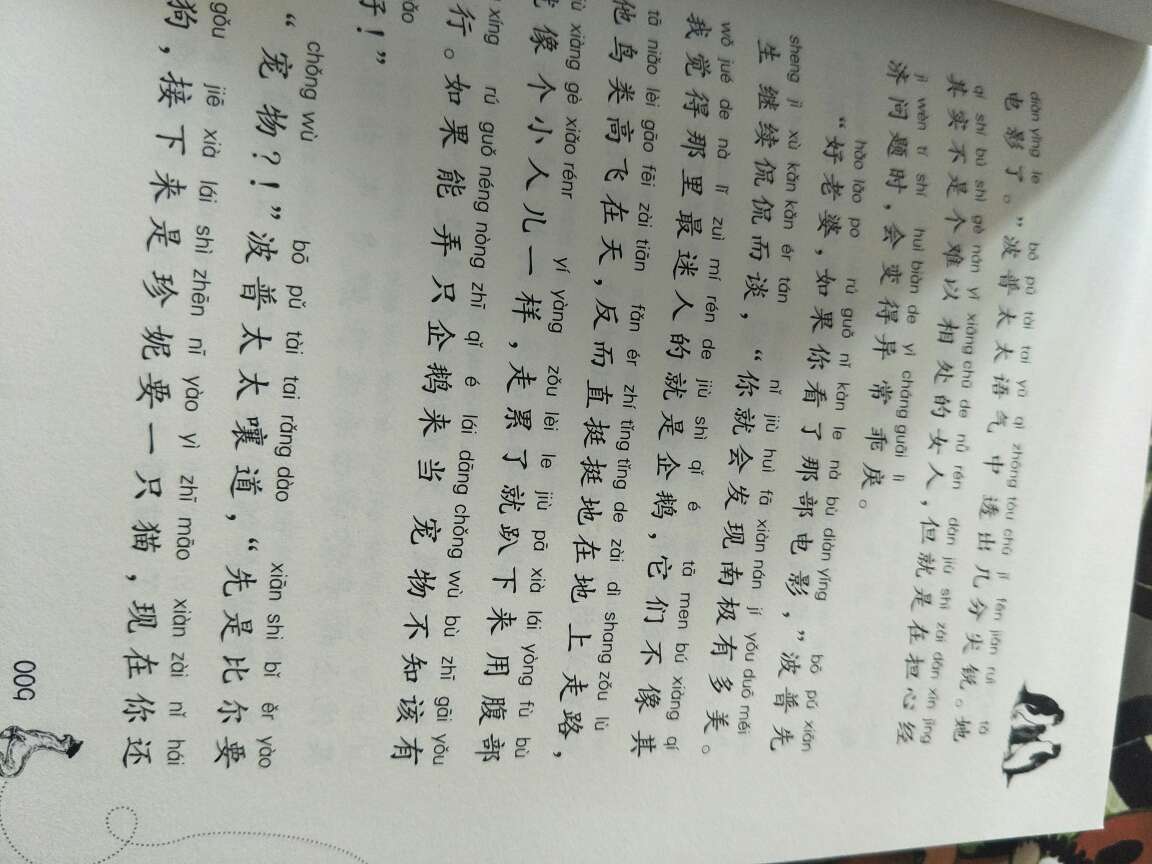 diàn yǐng le bō pǔ tài tai yǔ qì zhōng tòu chū jǐ fēn jiān ruì tā
电影了。”波普太太语气中透出几分尖锐。她
qí shí bú shì gè nán yǐ xiāng chǔ de nǚ rén dàn jiù shì zài dān xīn jīng
其实不是个难以相处的女人，但就是在担心经
jì wèn tí shí huì biàn de yì cháng guāi lì
济问题时，会变得异常乖戾。
hǎo lǎo po rú guǒ nǐ kàn le nà bù diàn yǐng bō pǔ xiān
“好老婆，如果你看了那部电影，”波普先
sheng jì xù kǎn kǎn ér tán nǐ jiù huì fā xiàn nán jí yǒu duō měi
生继续侃侃而谈，“你就会发现南极有多美。
wǒ jué de nà lǐ zuì mí rén de jiù shì qǐ é tā men bú xiàng qí
我觉得那里最迷人的就是企鹅，它们不像其
tā niǎo lèi gāo fēi zài tiān fǎn ér zhí tǐng tǐng de zài dì shang zǒu lù
他鸟类高飞在天，反而直挺挺地在地上走路，
xiàng gè xiǎo rénr yí yàng zǒu lèi le jiù pā xià lái yòng fù bù
像个小人儿一样，走累了就趴下来用腹部
xíng rú guǒ néng nòng zhī qǐ é lái dāng chǒng wù bù zhī gāi yǒu
行。如果能弄只企鹅来当宠物不知该有
！”
chǒng wù bō pǔ tài tai rǎng dào xiān shì bǐ ěr yào
“宠物？！”波普太太嚷道，“先是比尔要
gǒu jiē xià lái shì zhēn nī yào yì zhī māo xiàn zài nǐ hái
狗，接下来是珍妮要一只猫，现在你还
009